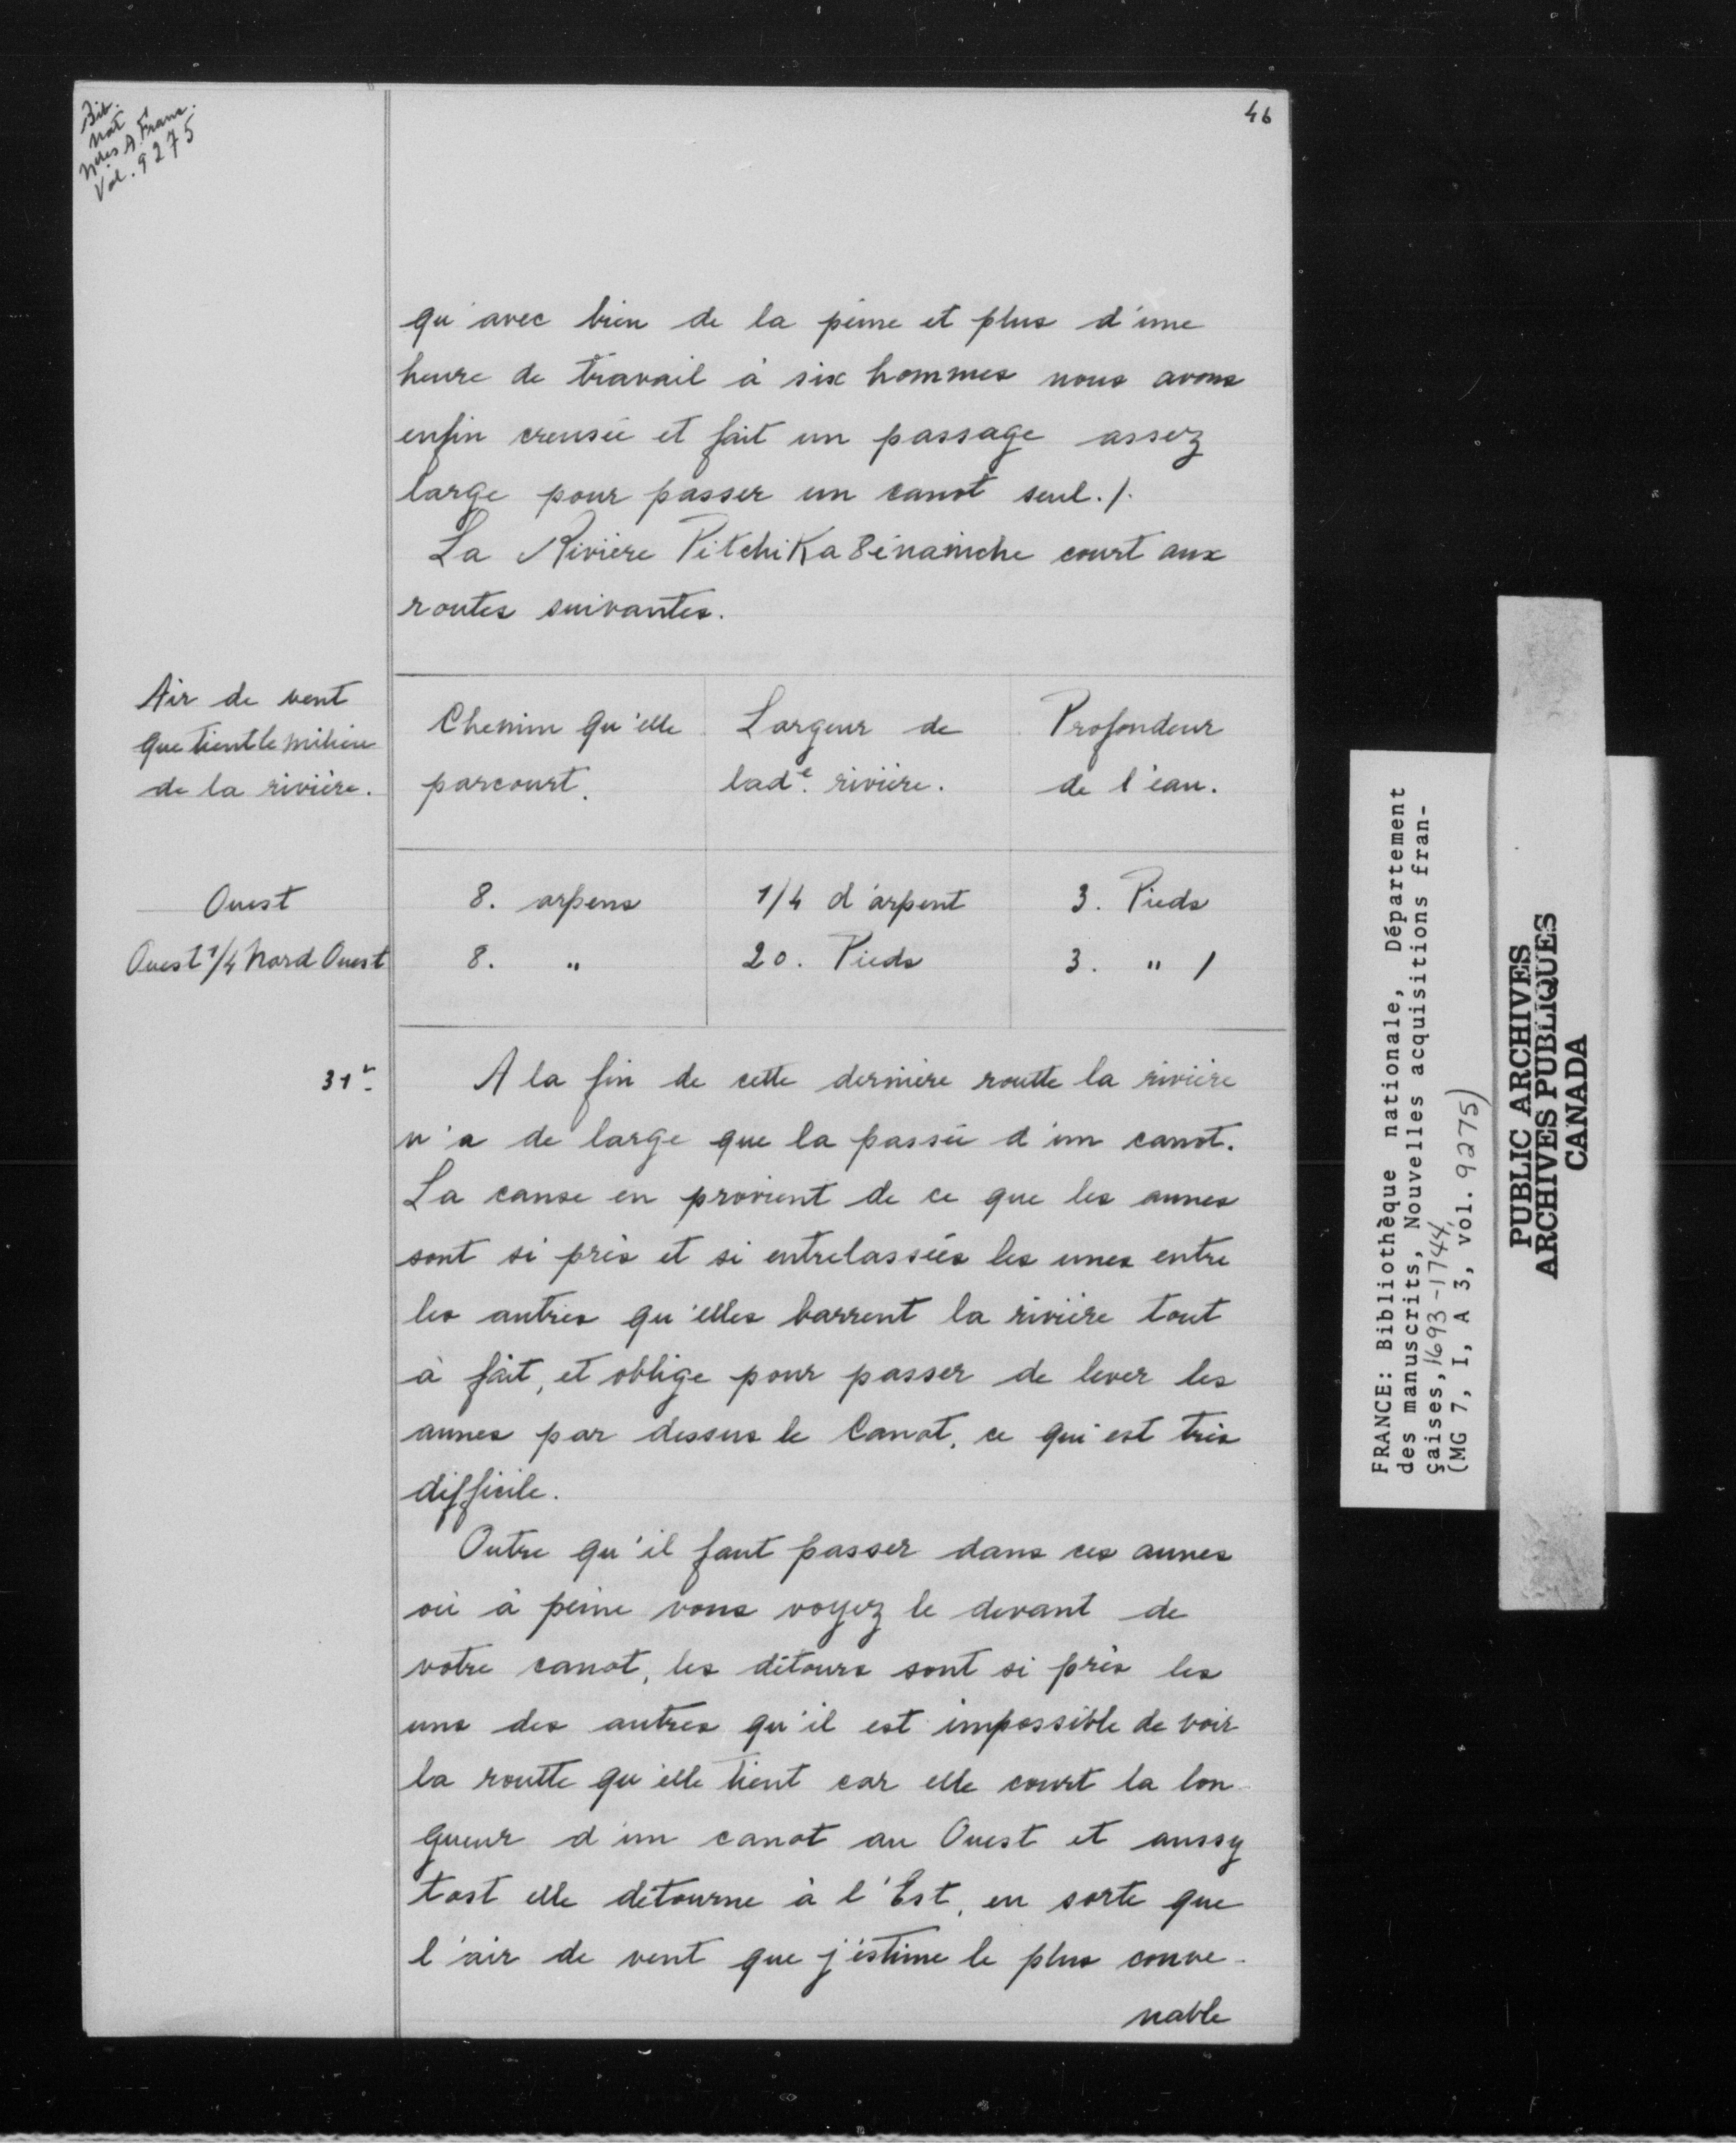 Bib.
Nat
Nlles A. Franc.
Vol. 9275
46
qu'avec bien de la peine et plus d'une
heure de travail à six hommes nous avons
enfin creusée et fait un passage assez
large pour passer un canot seul./.
La Rivière PitchiKa8énainche court aux
routes suivantes.
Air de vent
que tient le milieu
de la rivière.
Chemin qu'elle
parcourt.
Largeur de
lade. rivière.
Profondeur
de l'eau.
Ouest 8. arpens 1/4 d'arpent 3. Pieds
Ouest 1/4 Nord Ouest 8. " 20. Pieds 3. " /
31e A la fin de cette dernière routte la rivière
n'a de large que la passée d'un canot.
La cause en provient de ce que les aunes
sont si près et si entrelassées les unes entre
les autres qu'elles barrent la rivière tout
à fait, et oblige pour passer de lever les
aunes par dessus le Canot, ce qui est très
difficile.
Outre qu'il faut passer dans ces aunes
où à peine vous voyez le devant de
votre canot, les détours sont si près les
uns des autres qu'il est impossible de voir
la routte qu'elle tient car elle court la lon-
gueur d'un canot au Ouest et aussy
tost elle détourne à l'Est, en sorte que
l'air de vent que j'estime le plus conve-
nable
FRANCE: Bibliothèque nationale, Département
des manuscrits, Nouvelles acquisitions fran-
çaises, 1693-1744
(MG 7, I, A 3, vol. 9275)
PUBLIC ARCHIVES
ARCHIVES PUBLIQUES
CANADA